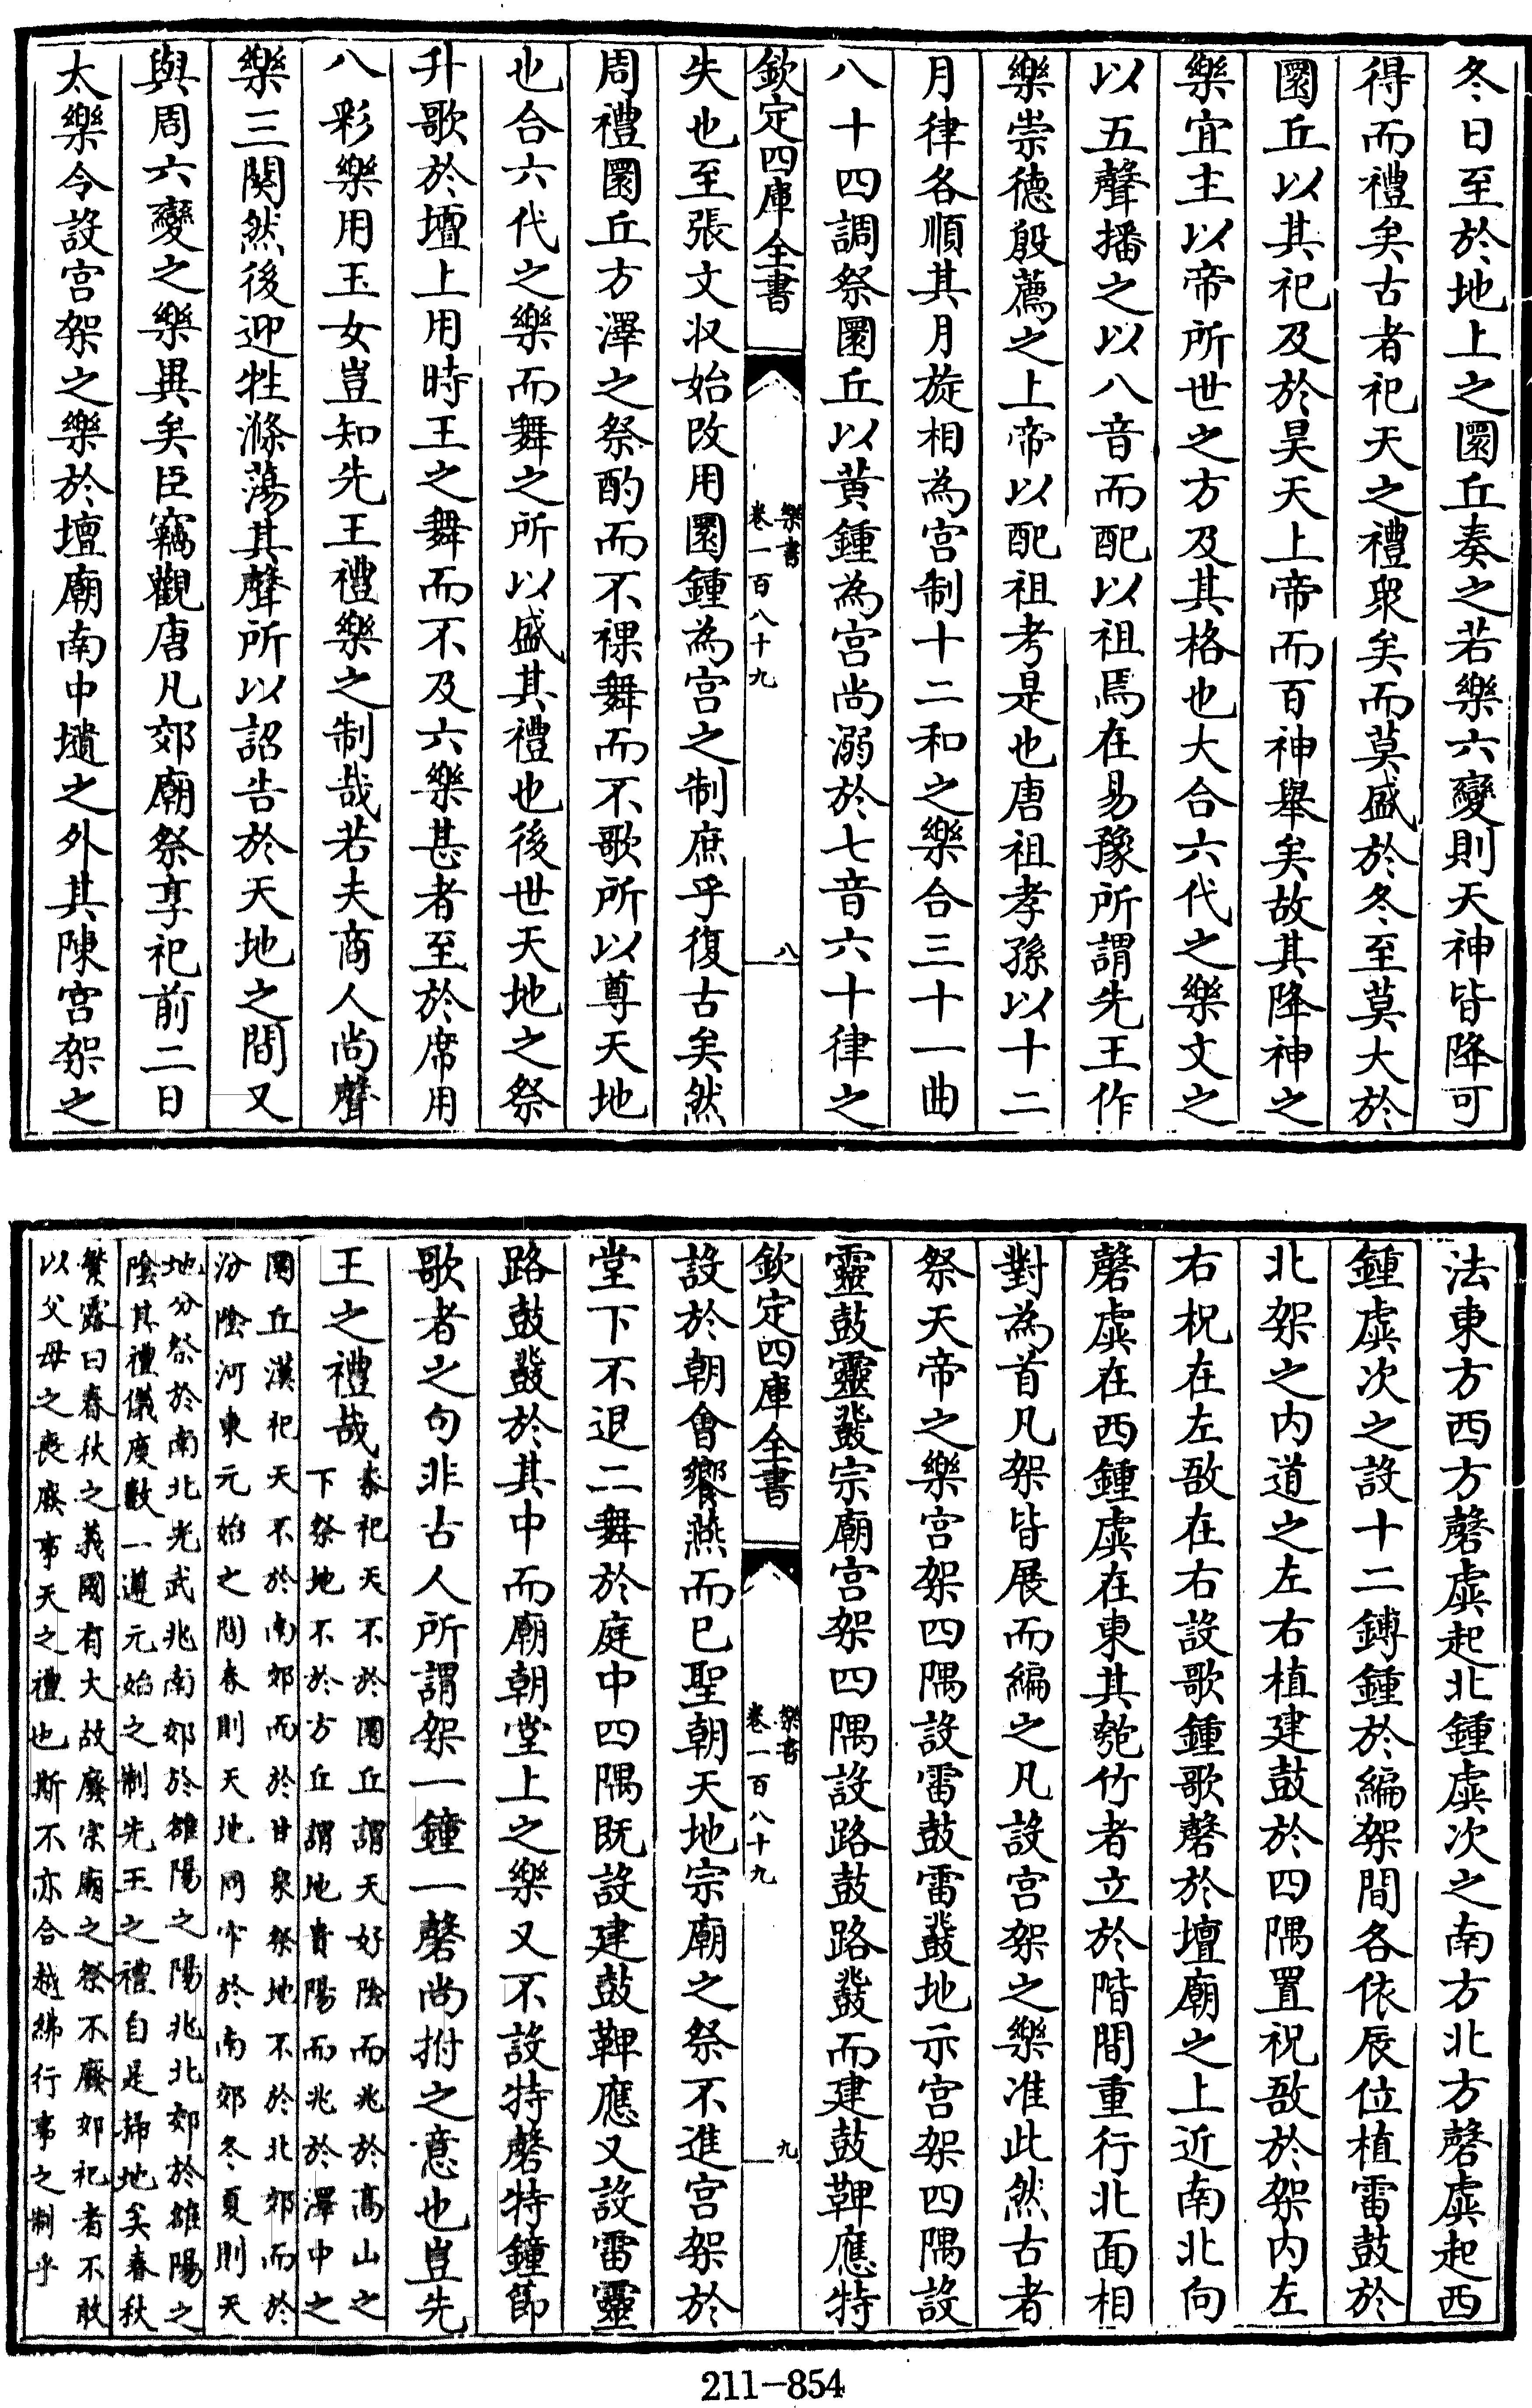 冬日至於地上之圜丘奏之若樂六變則天神皆降可
得而禮矣古者祀天之禮衆矣而莫盛於冬至莫大於
圜丘以其祀及於昊天上帝而百神舉矣故其降神之
樂宜主以帝所世之方及其格也大合六代之樂文之
以五聲播之以八音而配以祖焉在易豫所謂先王作
樂崇德殷薦之上帝以配祖考是也唐祖孝孫以十二
月律各順其月旋相為宫制十二和之樂合三十一曲
八十四調祭圜丘以黄鍾為宫尚溺於七音六十律之
欽定四庫全書
樂書
卷一百八十九
八
失也至張文収始改用圜鍾為宫之制庶乎復古矣然
周禮圜丘方澤之祭酌而不祼舞而不歌所以尊天地
也合六代之樂而舞之所以盛其禮也後世天地之祭
升歌於壇上用時王之舞而不及六樂甚者至於席用
八彩樂用玉女豈知先王禮樂之制哉若夫商人尚聲
樂三闋然後迎牲滌蕩其聲所以詔告於天地之間又
與周六變之樂異矣臣竊觀唐凡郊廟祭享祀前二日
太樂令設宫架之樂於壇廟南中壝之外其陳宫架之
法東方西方磬虡起北鍾虡次之南方北方磬虡起西
鍾虡次之設十二鎛鍾於編架間各依辰位植雷鼓於
北架之内道之左右植建鼓於四隅置柷敔於架内左
右柷在左敔在右設歌鍾歌磬於壇廟之上近南北向
磬虡在西鍾虡在東其匏竹者立於階間重行北面相
對為首凡架皆展而編之凡設宫架之樂准此然古者
祭天帝之樂宫架四隅設雷鼓雷鼗地示宫架四隅設
靈鼓靈鼗宗廟宫架四隅設路鼓路鼗而建鼓鞞應特
欽定四庫全書
樂書
卷一百八十九
九
設於朝會饗燕而已聖朝天地宗廟之祭不進宫架於
堂下不退二舞於庭中四隅既設建鼓鞞應又設雷靈
路鼓鼗於其中而廟朝堂上之樂又不設特磬特鐘節
歌者之句非古人所謂架一鐘一磬尚拊之意也豈先
王之禮哉
秦祀天不於圜丘謂天好陰而兆於高山之
下祭地不於方丘謂地貴陽而兆於澤中之
圜丘漢祀天不於南郊而於甘泉祭地不於北郊而於
汾陰河東元始之間春則天地同牢於南郊冬夏則天
地分祭於南北光武兆南郊於雒陽之陽兆北郊於雒陽之
陰其禮儀度數一遵元始之制先王之禮自是掃地矣春秋
繁露曰春秋之義國有大故廢宗廟之祭不廢郊祀者不敢
以父母之喪廢事天之禮也斯不亦合越紼行事之制乎
211-854